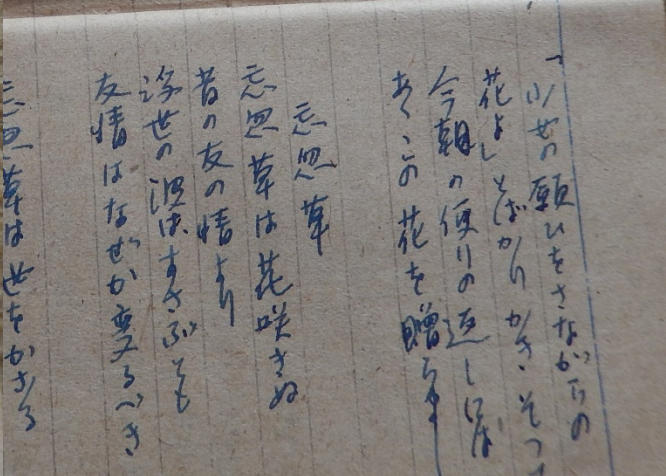 「少女の願ひをさながらの
花よしとばかりかきそへ
今朝の便りの返しにば
あゝこの花を贈らまし
忘忽草
忘忽草は花咲きぬ
昔の友の情より
浮世の波はすさぶとも
友情はなぜか変るべき
忘忽草は世をかさる